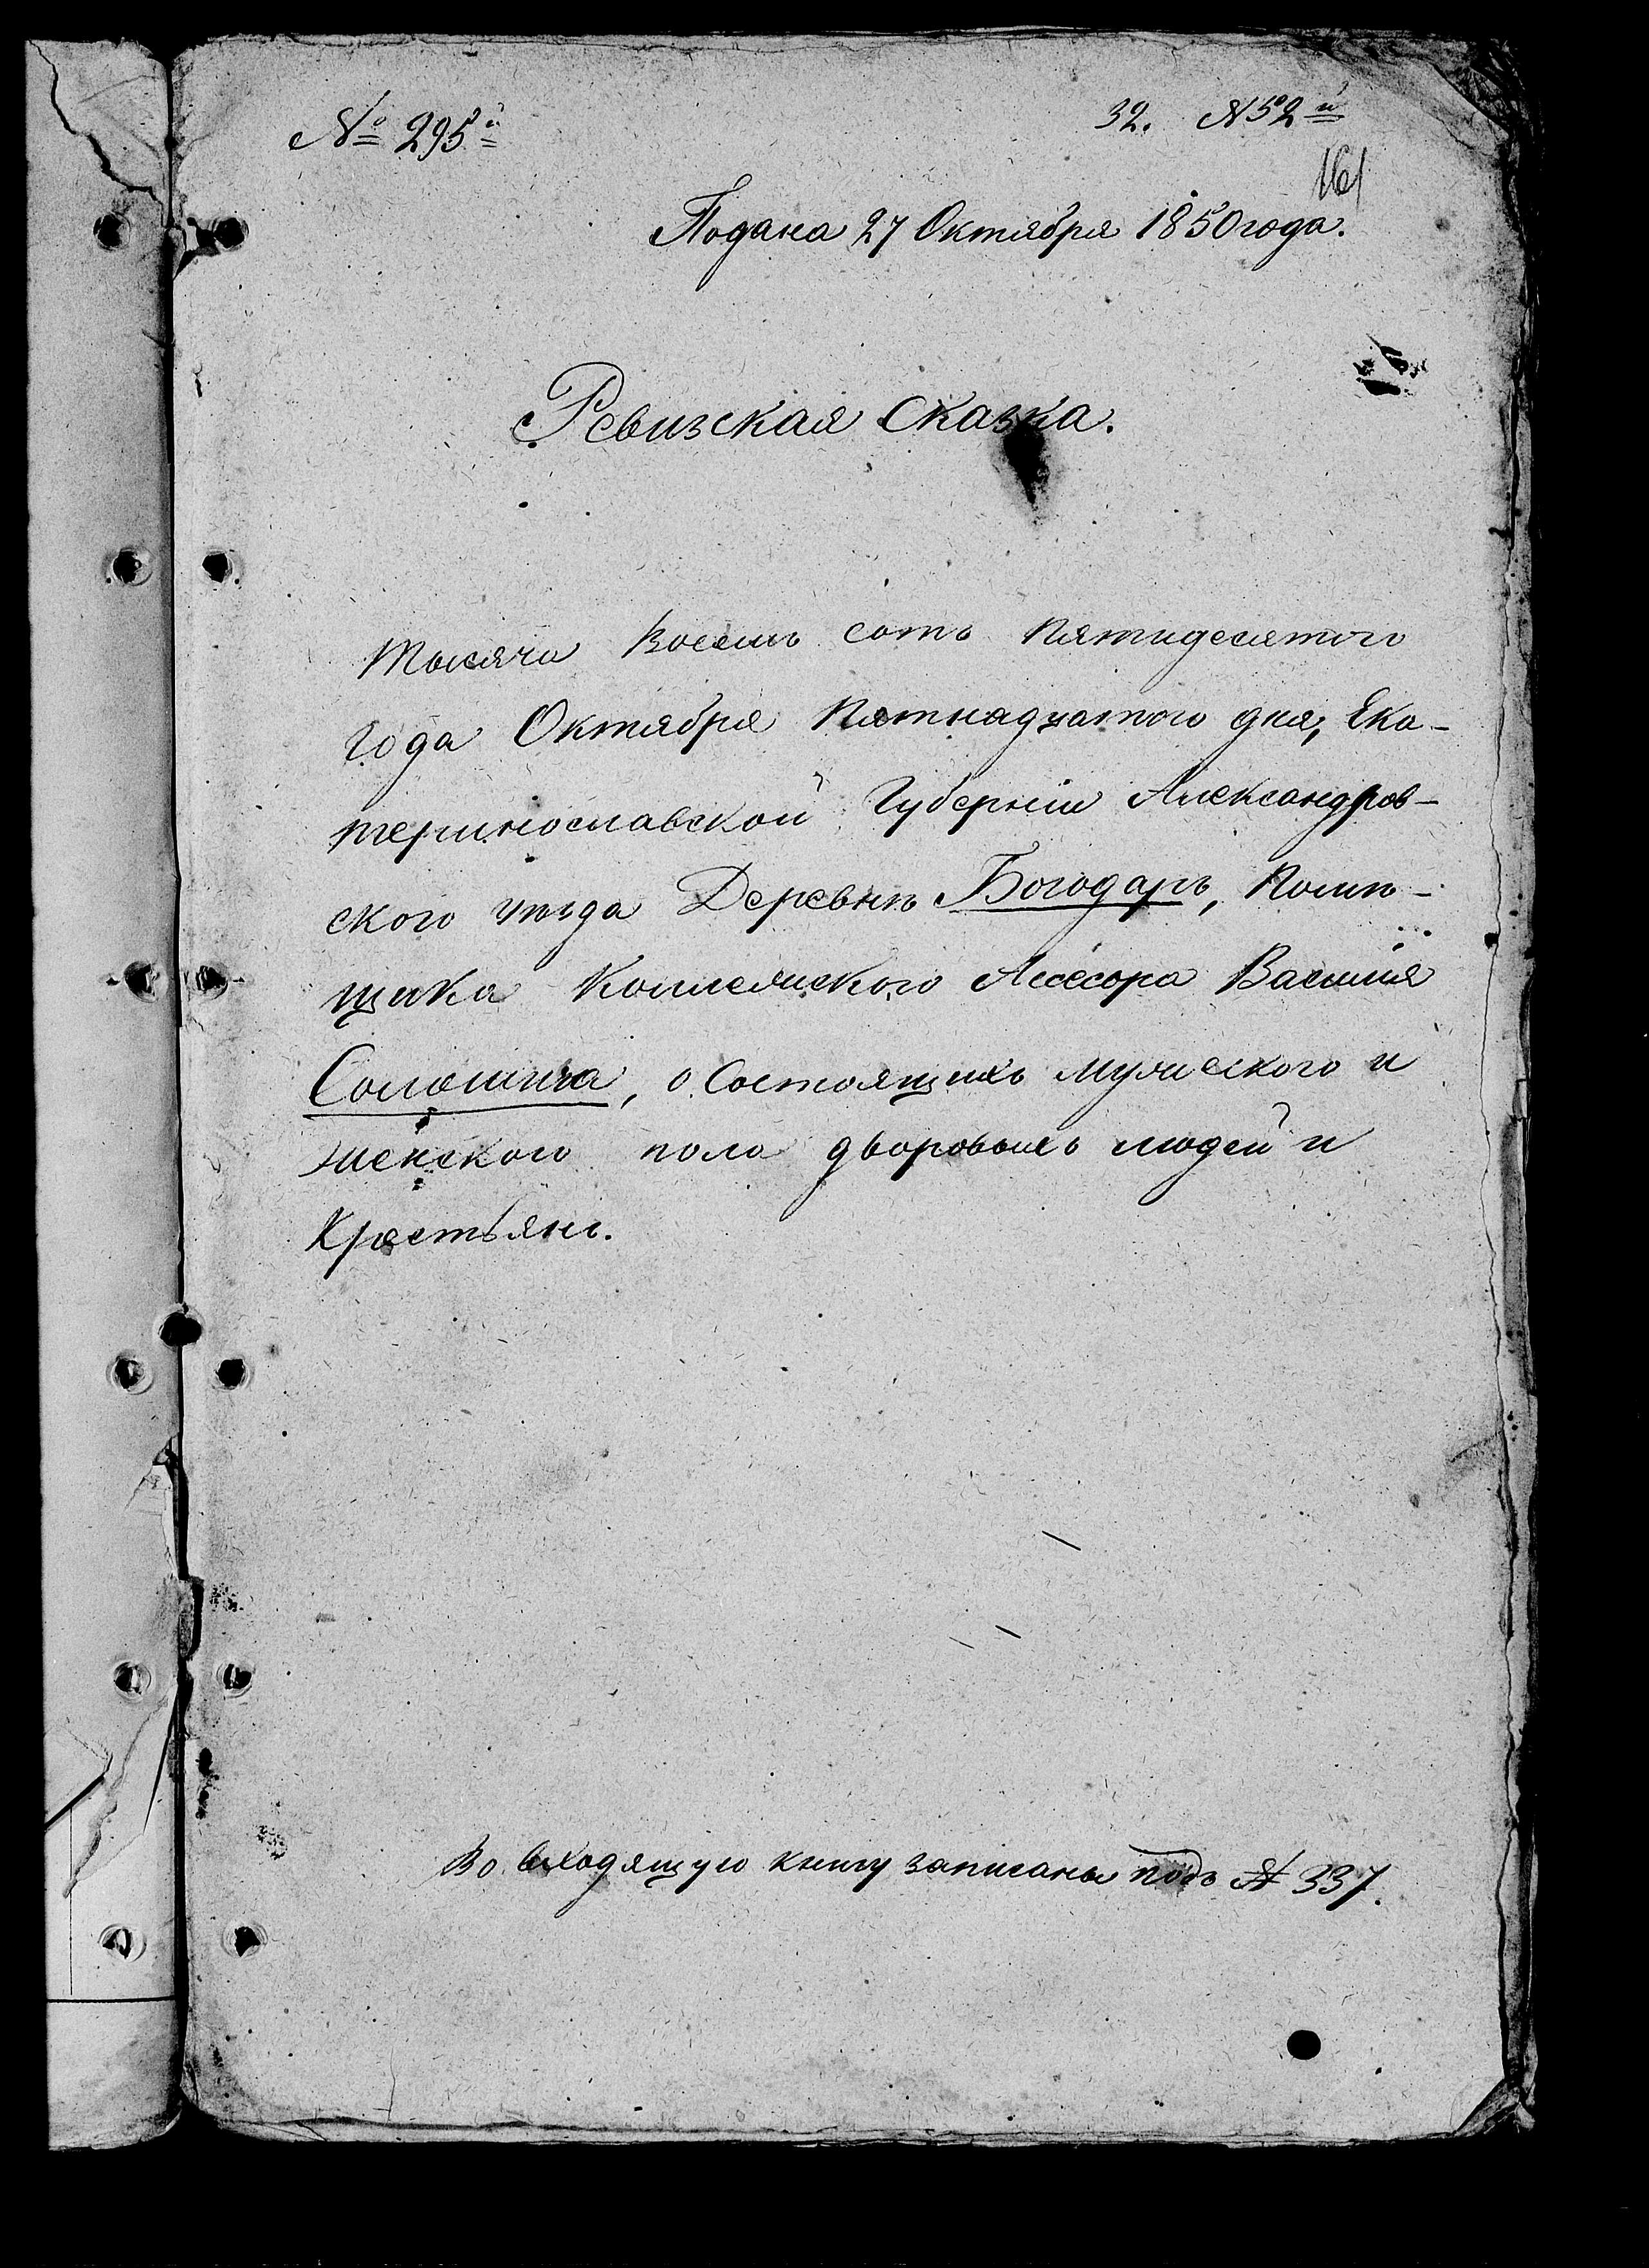 № 295й
32. N 52й
161
Подана 27 Октября 1850 года.
Ревизская Сказка.
Тысяча Восемь сотъ Пятидесятого
года Октября Пятнадцатого дня, Ека-
теринославской Губерніи Александров-
ского уѣзда Деревнѣ Богодаръ, Помѣ-
щика Коллежского Ассесора Василія
о Состоящихъ мужеского и
женского пола дворовыхъ людей и
Крестьянъ.
Во входящую книгу записана подъ № 337.